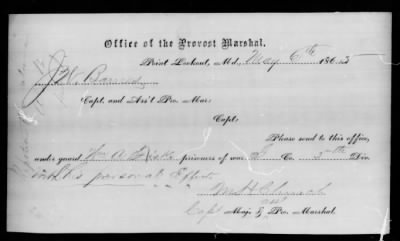 Office of the Provost Marshal.
Point Lookout, Md., May 6th 1865
J. W.
Capt. and Ass't Pro. Mar.
Capt:
Please send to this office,
under guard Wm A prisoners of war Co. 5th Div.
with his personal Effects
Capt Maj. & Pro. Marshal.